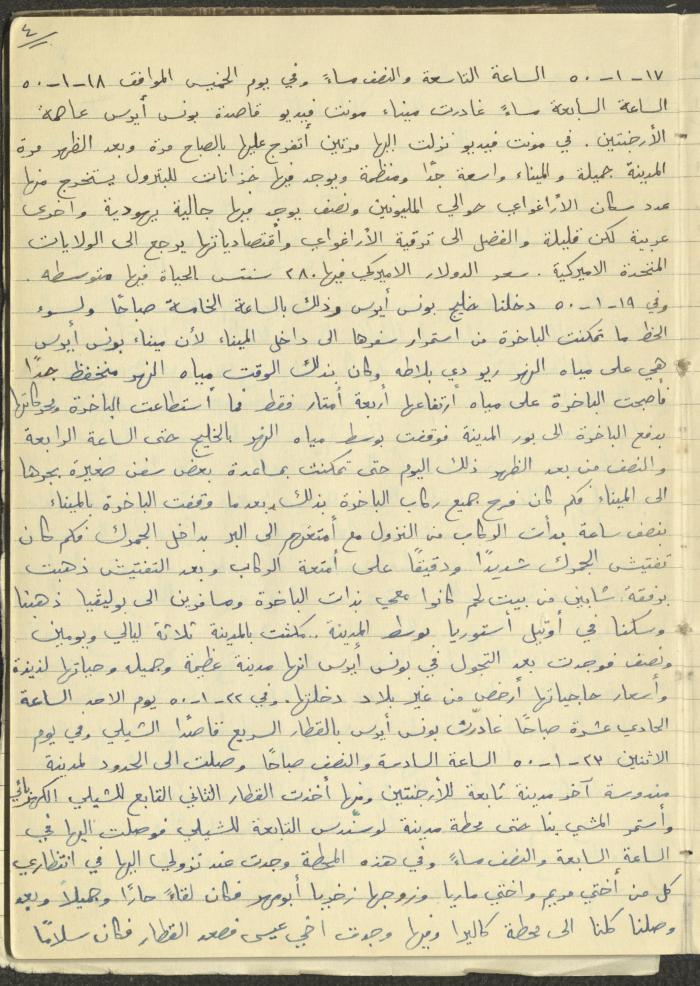 ٤
١٧-١-٥٠ الساعة التاسعة والنصف مساءً وفي يوم الخميس الموافق ١٨-١-٥٠
الساعة السابعة مساءً غادرت ميناء مونت فيديو قاصدة بونس أيرس عاصمة
الأرجنتين. في مونت فيديو نزلت اليها مرتين أتفرج عليها بالصباح مرة وبعد الظهر مرة
المدينة جميلة والميناء واسعة جدًا ومنظمة ويوجد فيها خزانات للبترول يستخرج منها
عدد سكان الأراغواي حوالي المليونين ونصف يوجد فيها جالية يهودية وأخرى
عربية لكن قليلة والفضل الى ترقية الأراغواي وأقتصادياتها يرجع الى الولايات
المتحدة الاميركية. سعر الدولار الاميركي فيها ٢٨٠ سنتس الحياة فيها متوسطه.
وفي ١٩-١-٥٠ دخلنا خليج بونس أيرس وذلك بالساعة الخامسة صباحًا ولسوء
الحظ ما تمكنت الباخرة من استمرار سفرها الى داخل الميناء لأن ميناء بونس أيرس
هي على مياه النهر ريو دي بلاطه وكان بذلك الوقت مياه النهر منخفظ جدًا
فأصبحت الباخرة على مياه أرتفاعها أربعة أمتار فقط فما أستطاعت الباخرة ومحركاتها
بدفع الباخرة الى بور المدينة فوقفت بوسط مياه النهر بالخليج حتى الساعة الرابعة
والنصف من بعد الظهر ذلك اليوم حتى تمكنت بمساعدة بعض سفن صغيرة بجرها
الى الميناء فكم كان فرح جميع ركاب الباخرة بذلك وبعد ما وقفت الباخرة بالميناء
بنصف ساعة بدأت الركاب من النزول مع أمتعتهم الى البر بداخل الجمرك فكم كان
تفتيش الجمرك شديدًا ودقيقًا على أمتعة الركاب وبعد التفتيش ذهبت
برفقة شابين من بيت لحم كانوا معي بذات الباخرة ومسافرين الى بوليفيا ذهبنا
وسكنا في أوتيل أستوريا بوسط المدينة.. مكثت بالمدينة ثلاثة ليالي ويومين
ونصف فوجدت بعد التجول في بونس أيرس انها مدينة عظيمة وجميله وحياتها لذيذة
وأسعار حاجياتها أرخص من غير بلاد دخلتها. وفي ٢٢-١-٥٠ يوم الاحد الساعة
الحادي عشرة صباحًا غادرت بونس أيرس بالقطار السريع قاصدًا الشيلي وفي يوم
الاثنين ٢٣-١-٥٠ الساعة السادسة والنصف صباحًا وصلت الى الحدود لمدينة
مندوسة آخر مدينة تابعة للأرجنتين ومنها أخذت القطار الثاني التابع للشيلي الكهربائي
وأستمر المشي بنا حتى محطة مدينة لوسندس التابعة للشيلي فوصلت اليها في
الساعة السابعة والنصف مساءً وفي هذه المحطة وجدت عند نزولي اليها في انتظاري
كل من أختي مريم واختي ماريا وزوجها زخريا أبومهر فكان لقاءً حارًا وجميلاً وبعد
وصلنا كلنا الى محطة كاليرا وفيها وجدت اخي عيسى فصعد القطار فكان سلامًا